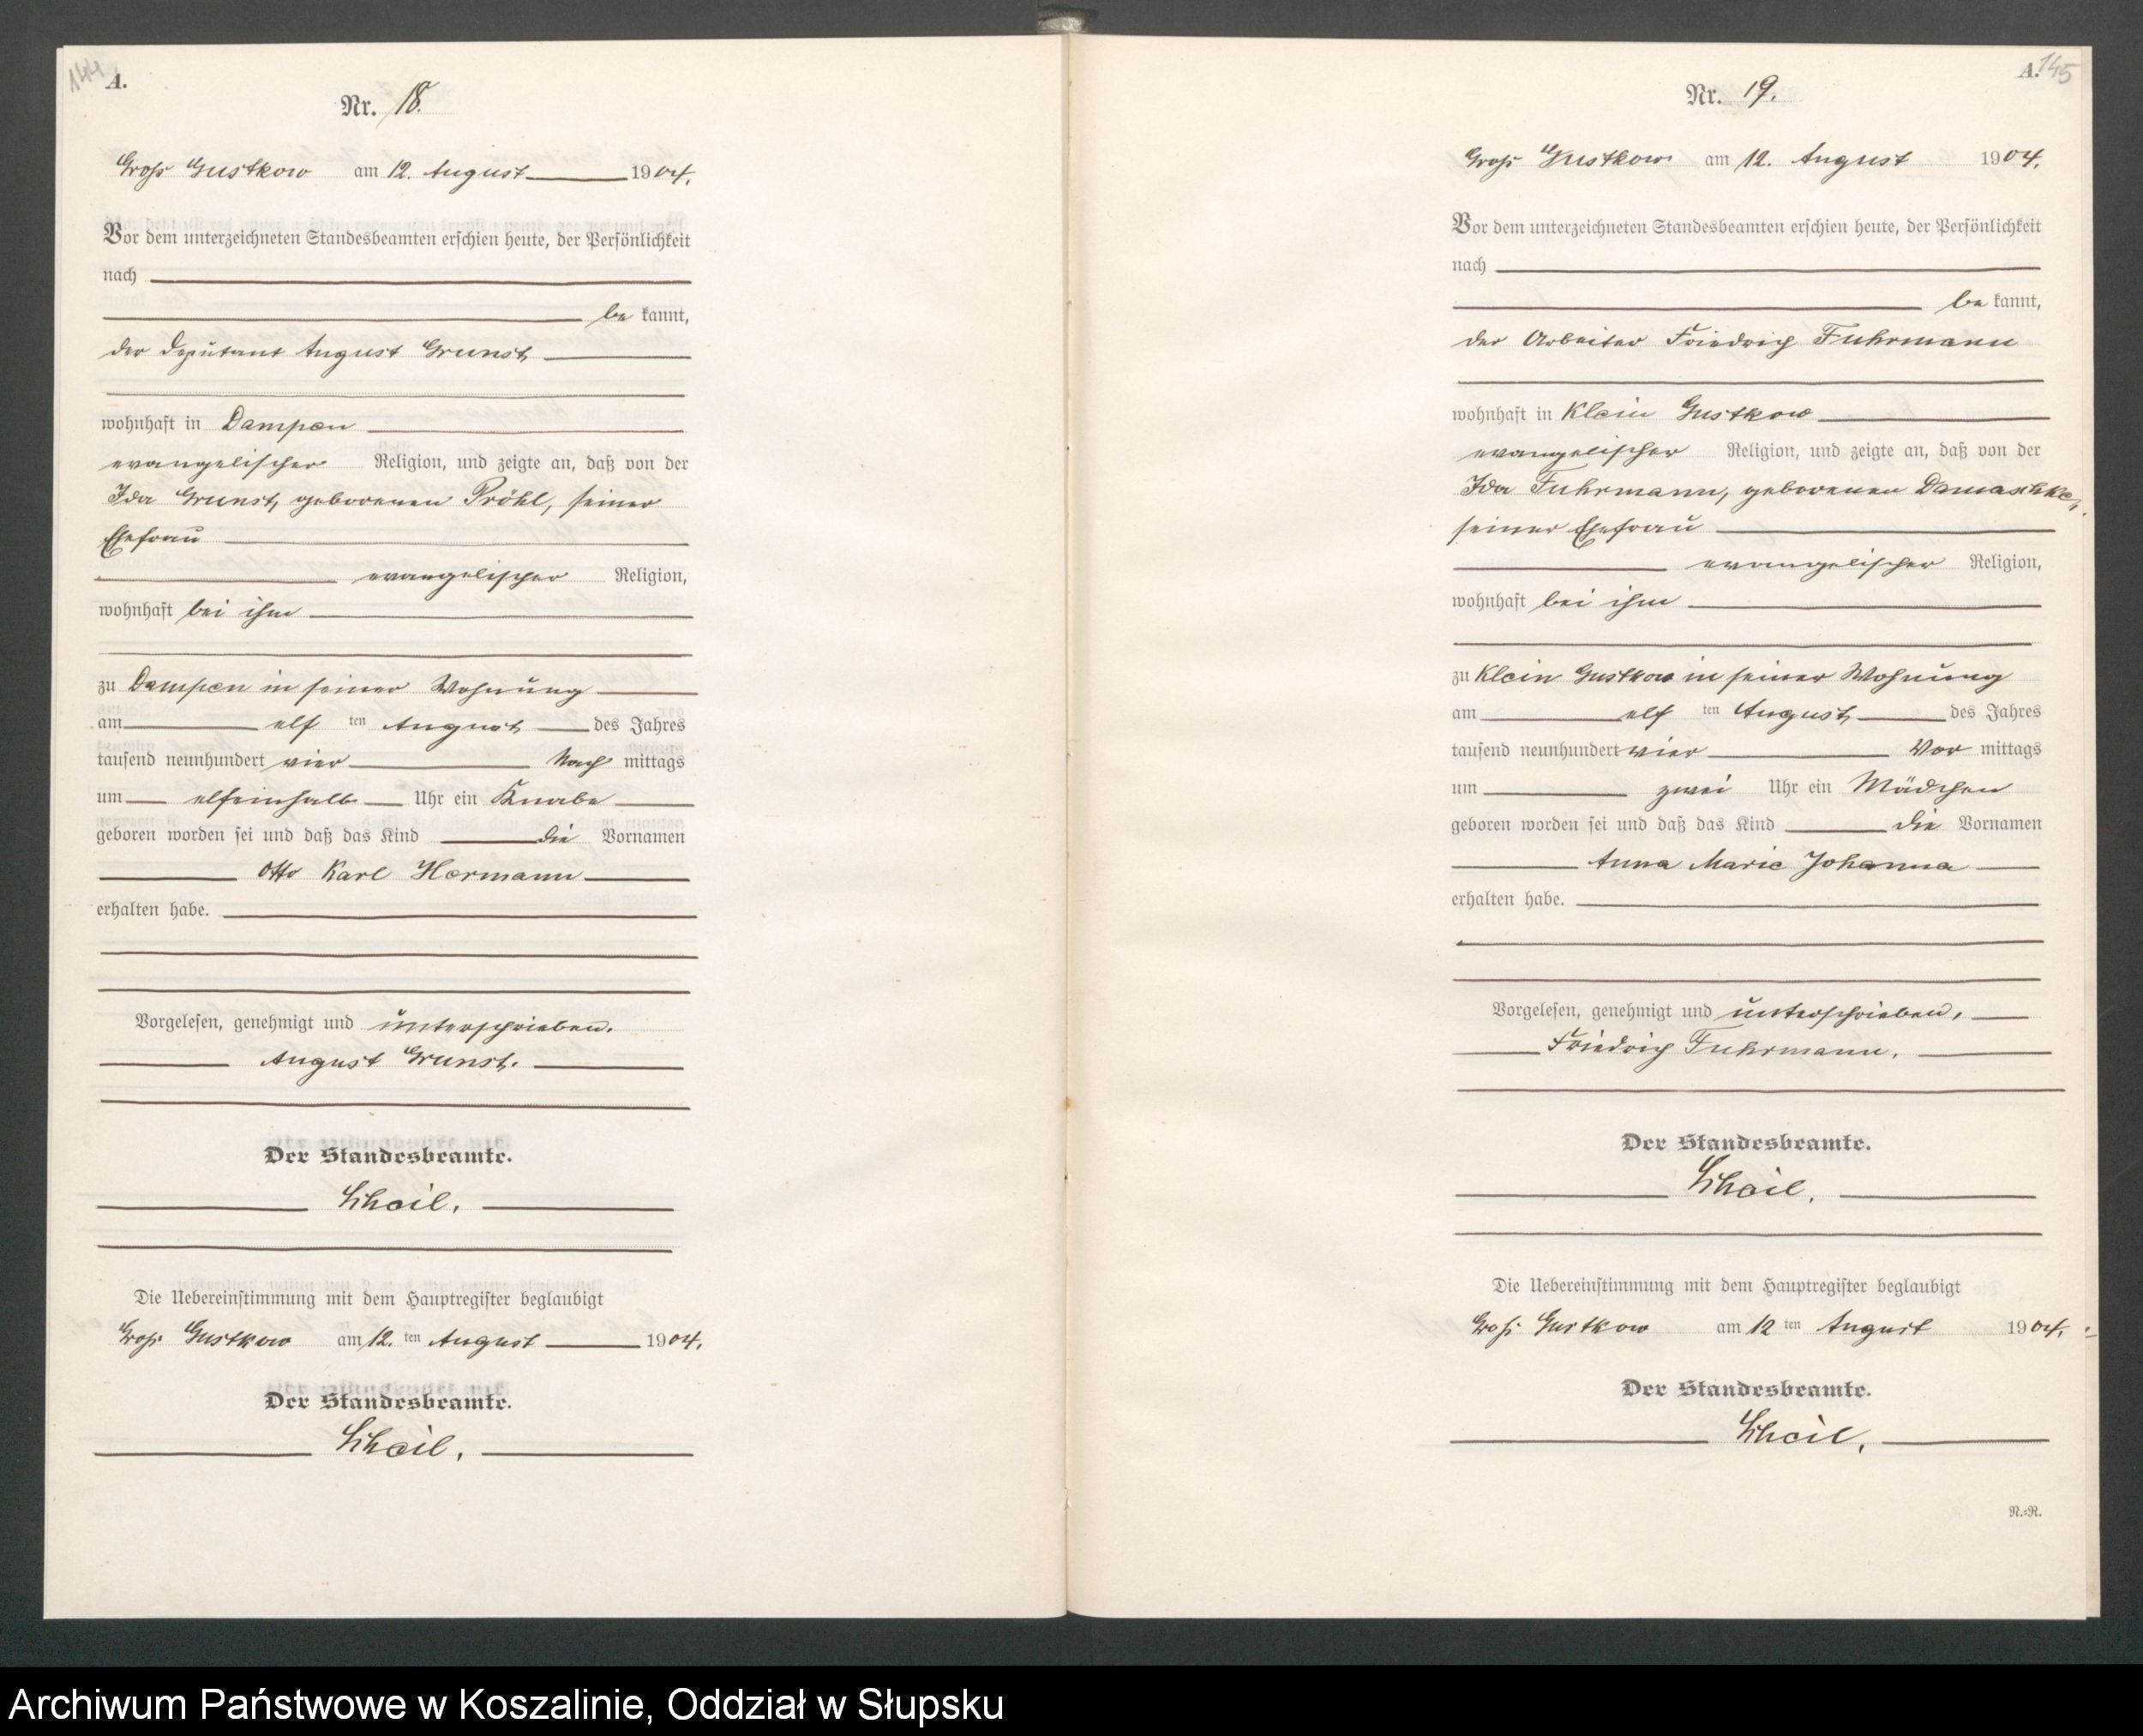 144
A.
Nr. 18.
Groß Gustkow am 12. August 1904.
Vor dem unterzeichneten Standesbeamten erschien heute, der Persönlichkeit
nach
be kannt,
der Deputant August Grunst,
wohnhaft in Dampen
evangelischer Religion, und zeigte an, daß von der
Ida Grunst, geborenen Pröhl, seiner
Ehefrau
evangelischer Religion,
wohnhaft bei ihm
zu Dampen in seiner Wohnung
am elf ten August des Jahres
tausend neunhundert vier Nach mittags
um elfeinhalb Uhr ein Knabe
geboren worden sei und daß das Kind die Vornamen
Otto Karl Hermann
erhalten habe.
Vorgelesen, genehmigt und unterschrieben.
August Grunst.
Der Standesbeamte.
Die Uebereinstimmung mit dem Hauptregister beglaubigt
Groß Gustkow am 12. ten August 1904.
Der Standesbeamte.
A. 145
Nr. 19.
Groß Gustkow am 12. August 1904.
Vor dem unterzeichneten Standesbeamten erschien heute, der Persönlichkeit
nach
be kannt,
der Arbeiter Friedrich Fuhrmann
wohnhaft in Klein Gustkow
evangelischer Religion, und zeigte an, daß von der
Ida Fuhrmann, geborenen Damaschke,
seiner Ehefrau
evangelischer Religion,
wohnhaft bei ihm
zu Klein Gustkow in seiner Wohnung
am elf ten August des Jahres
tausend neunhundert vier Vor mittags
um zwei Uhr ein Mädchen
geboren worden sei und daß das Kind die Vornamen
Anna Marie Johanna
erhalten habe.
Vorgelesen, genehmigt und unterschrieben.
Friedrich Fuhrmann.
Der Standesbeamte.
Die Uebereinstimmung mit dem Hauptregister beglaubigt
Groß Gustkow am 12 ten August 1904.
Der Standesbeamte.
R.=R.
Archiwum Państwowe w Koszalinie, Oddział w Słupsku